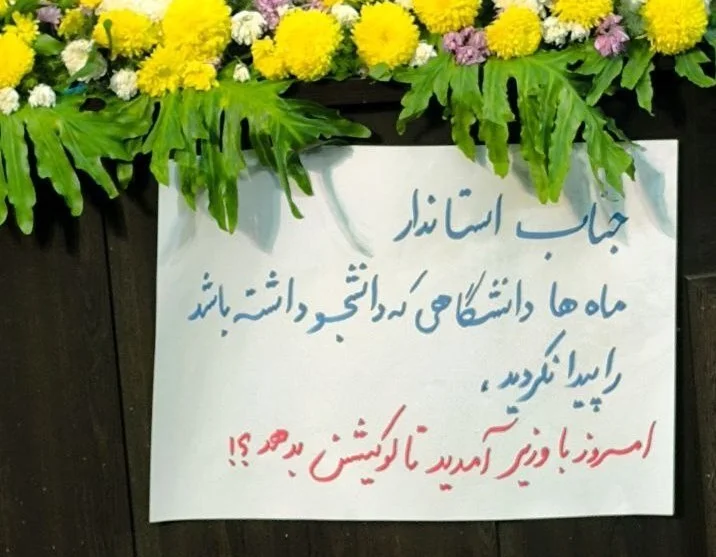 جناب استاندار
ماه ها دانشگاهی که دانشجو داشته باشد
را پیدا نکردید ،
امروز با وزیر آمدید تا لوکیشن بدهد ؟!